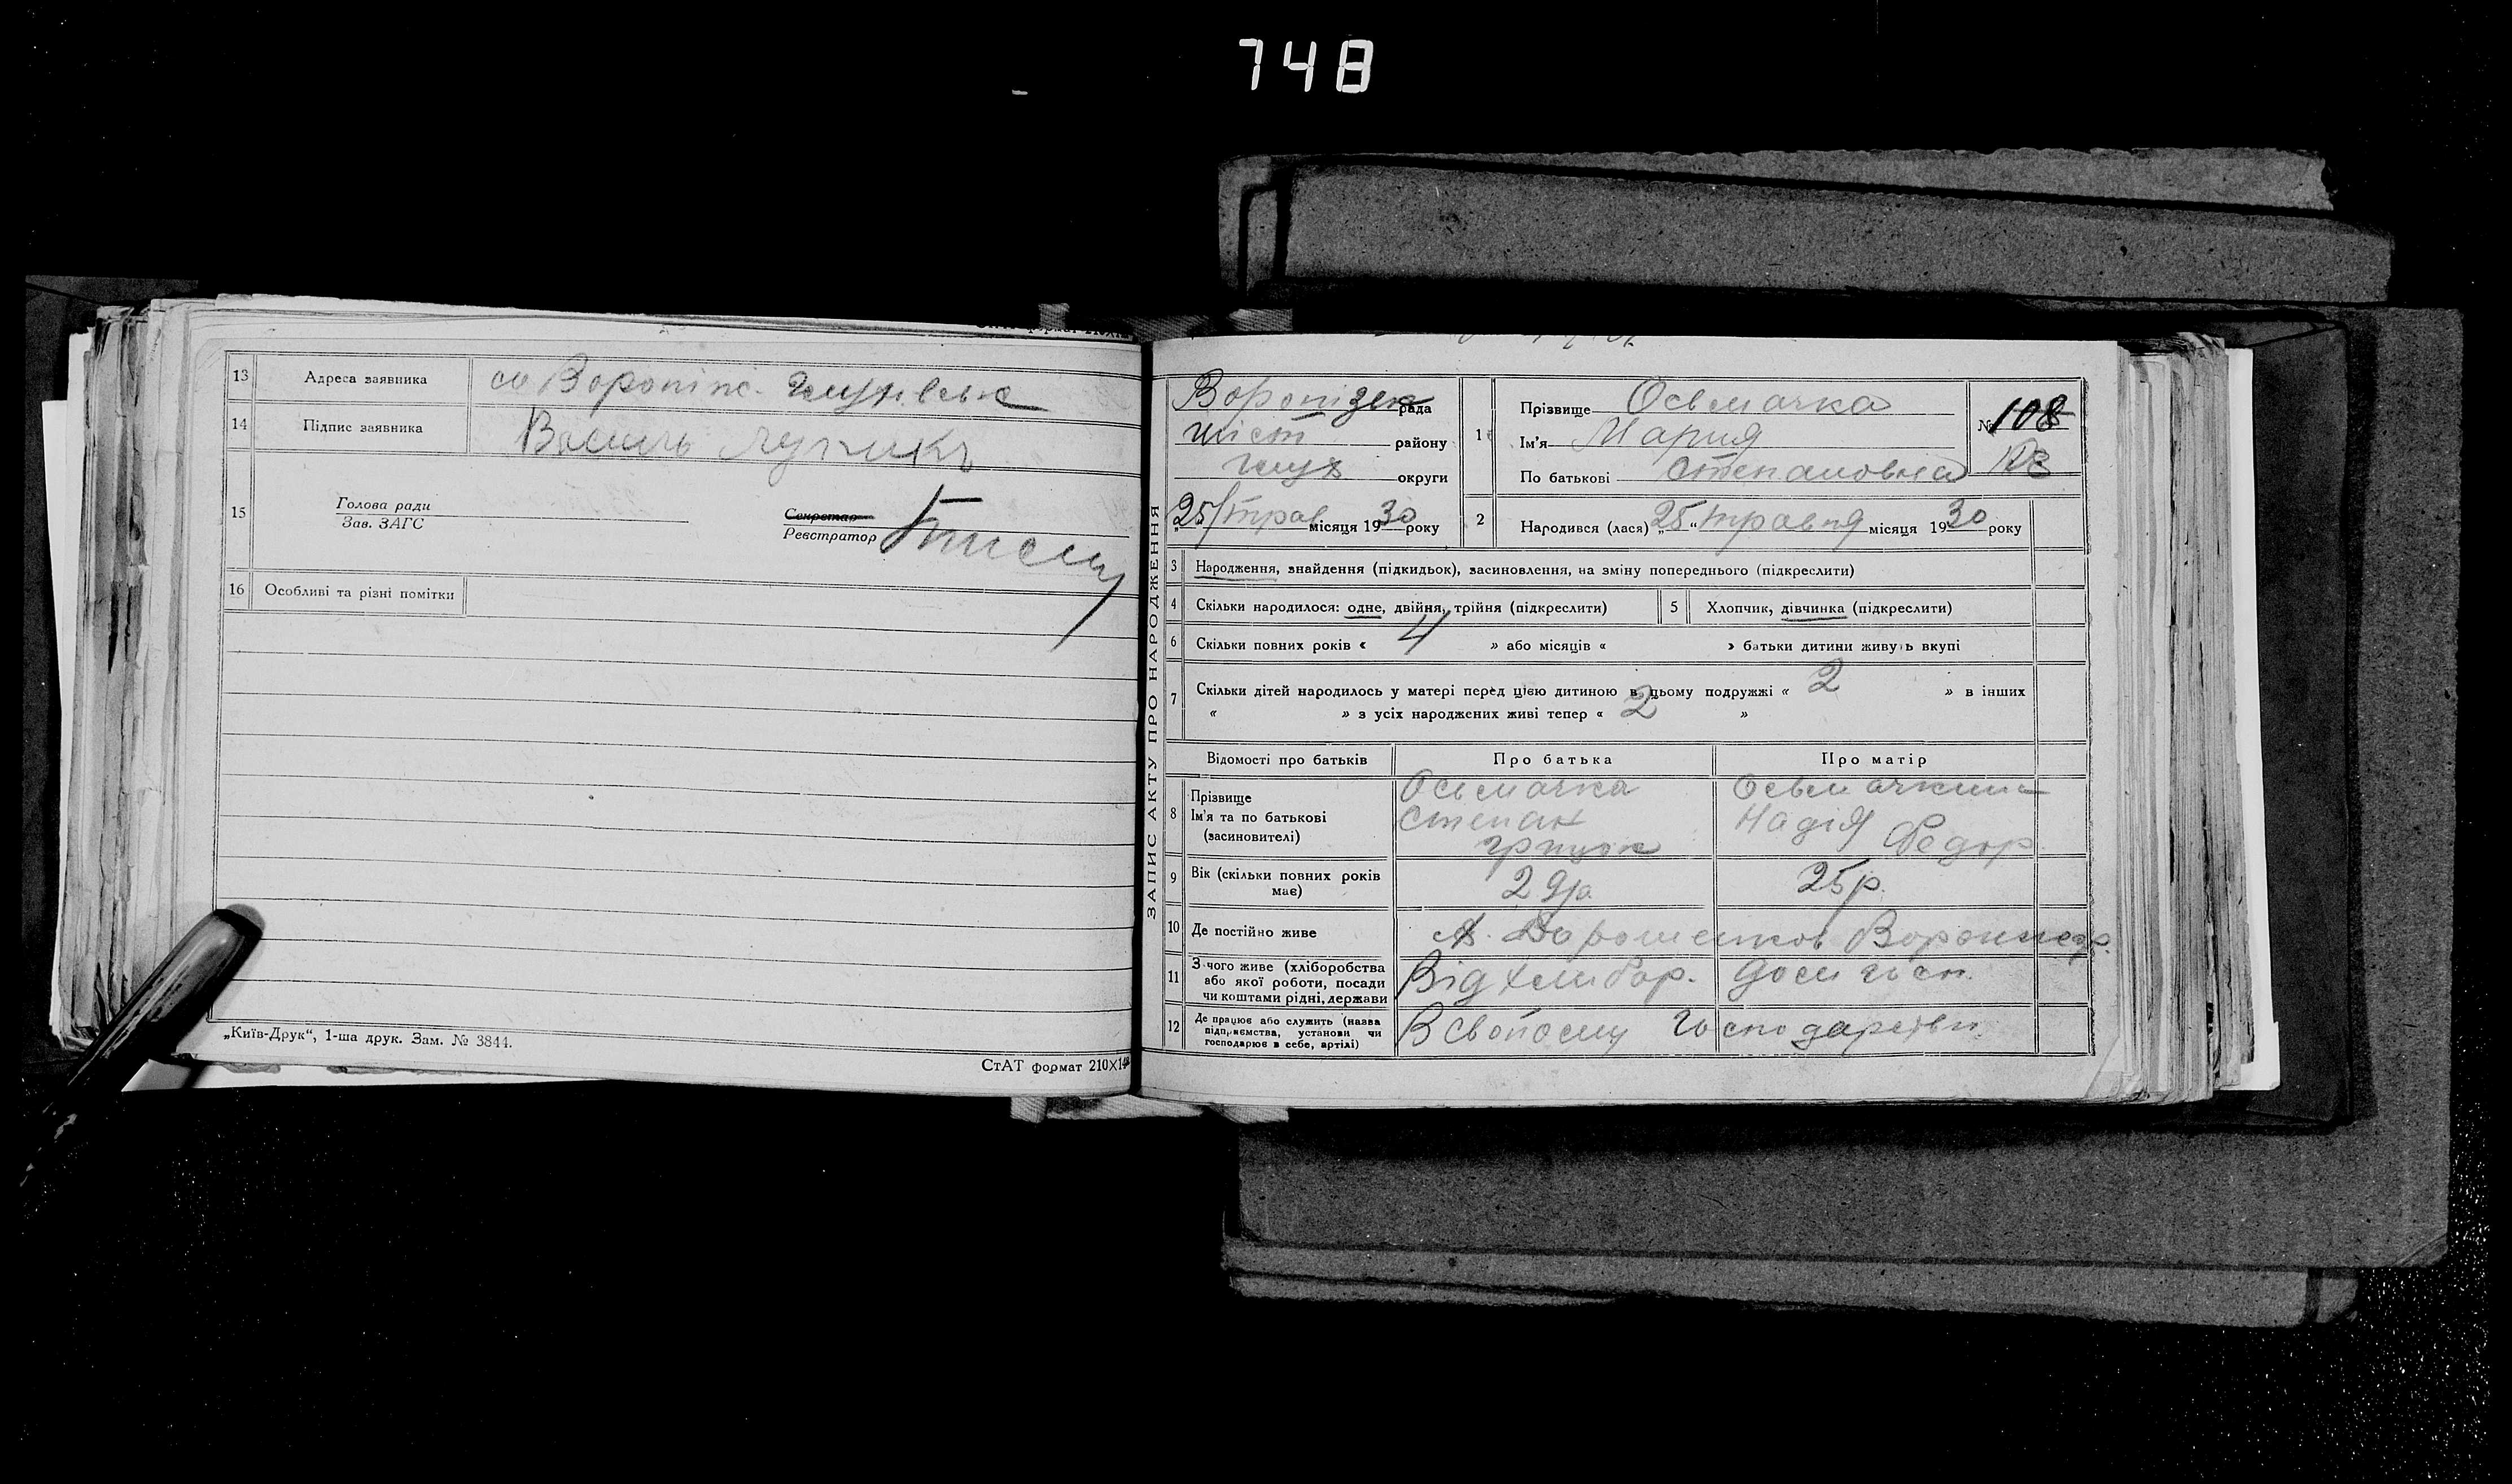 748
13 Адреса заявника
14 Підпис заявника Василь
15 Голова ради
Зав. ЗАГС
Секретар
Реєстратор
16 Особливі та різні помітки
„Київ-Друк“, 1-ша друк. Зам. № 3844.
СтАТ формат 210X14
ЗАПИС АКТУ ПРО НАРОДЖЕННЯ
рада
району
округи
25/трав місяця 1930 року
1 Прізвище Осьмачка
Ім'я Мария
По батькові Степановна
№ 108
2 Народився (лася) „25“ травня місяця 1930 року
3 Народження, знайдення (підкидьок), засиновлення, на зміну попереднього (підкреслити)
4 Скільки народилося: одне, двійня, трійня (підкреслити)
5 Хлопчик, дівчинка (підкреслити)
6 Скільки повних років « 4 » або місяців « » батьки дитини живуть вкупі
7 Скільки дітей народилось у матері перед цією дитиною в цьому подружжі « 2 » в інших
« » з усіх народжених живі тепер « 2 »
Відомості про батьків Про батька Про матір
8 Прізвище
Ім'я та по батькові
(засиновителі)
Осьмачка
Степан
Осьмачкина
Надія Федор
9 Вік (скільки повних років має) 29р 25р.
10 Де постійно живе
11 З чого живе (хліборобства
або якої роботи, посади
чи коштами рідні, держави
Від хлибор. Дом госп.
12 Де працює або служить (назва
підприємства, установи чи
господарює в себе, артілі)
В свойому господарстви